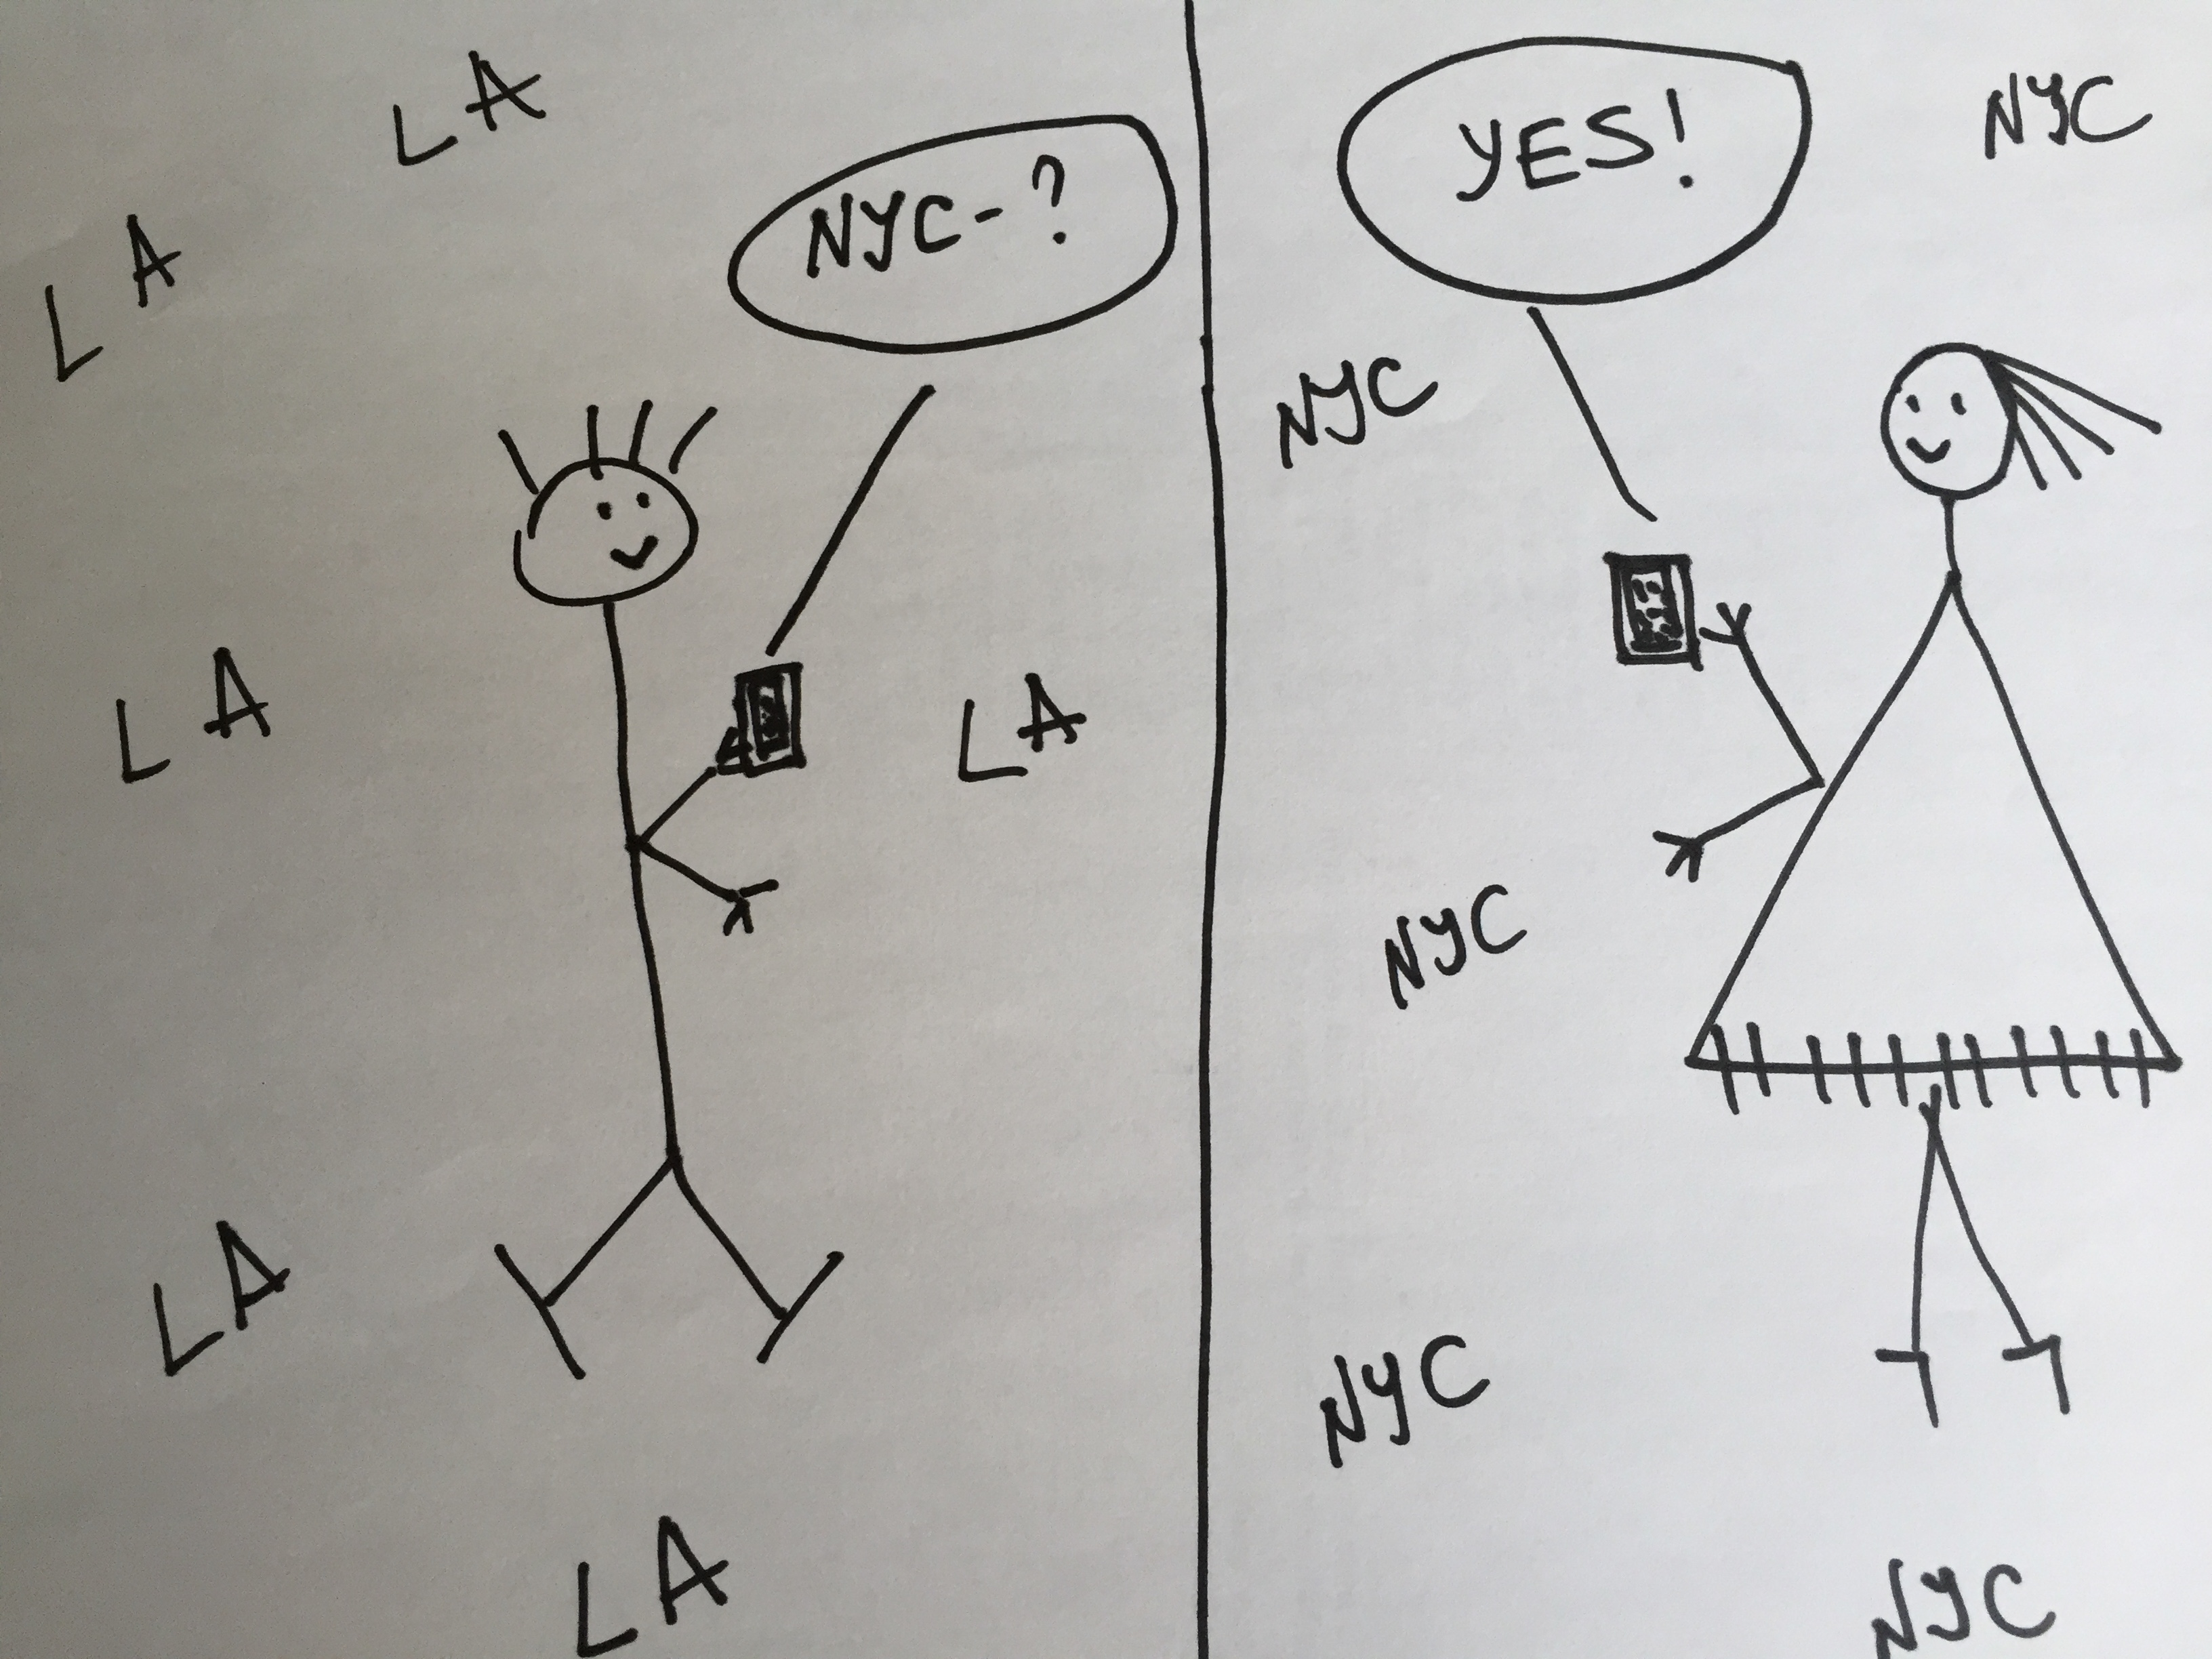 LA
LA
NYC-?
LA
LA
LA
LA
YES!
NYC
NYC
NYC
NYC
NYC